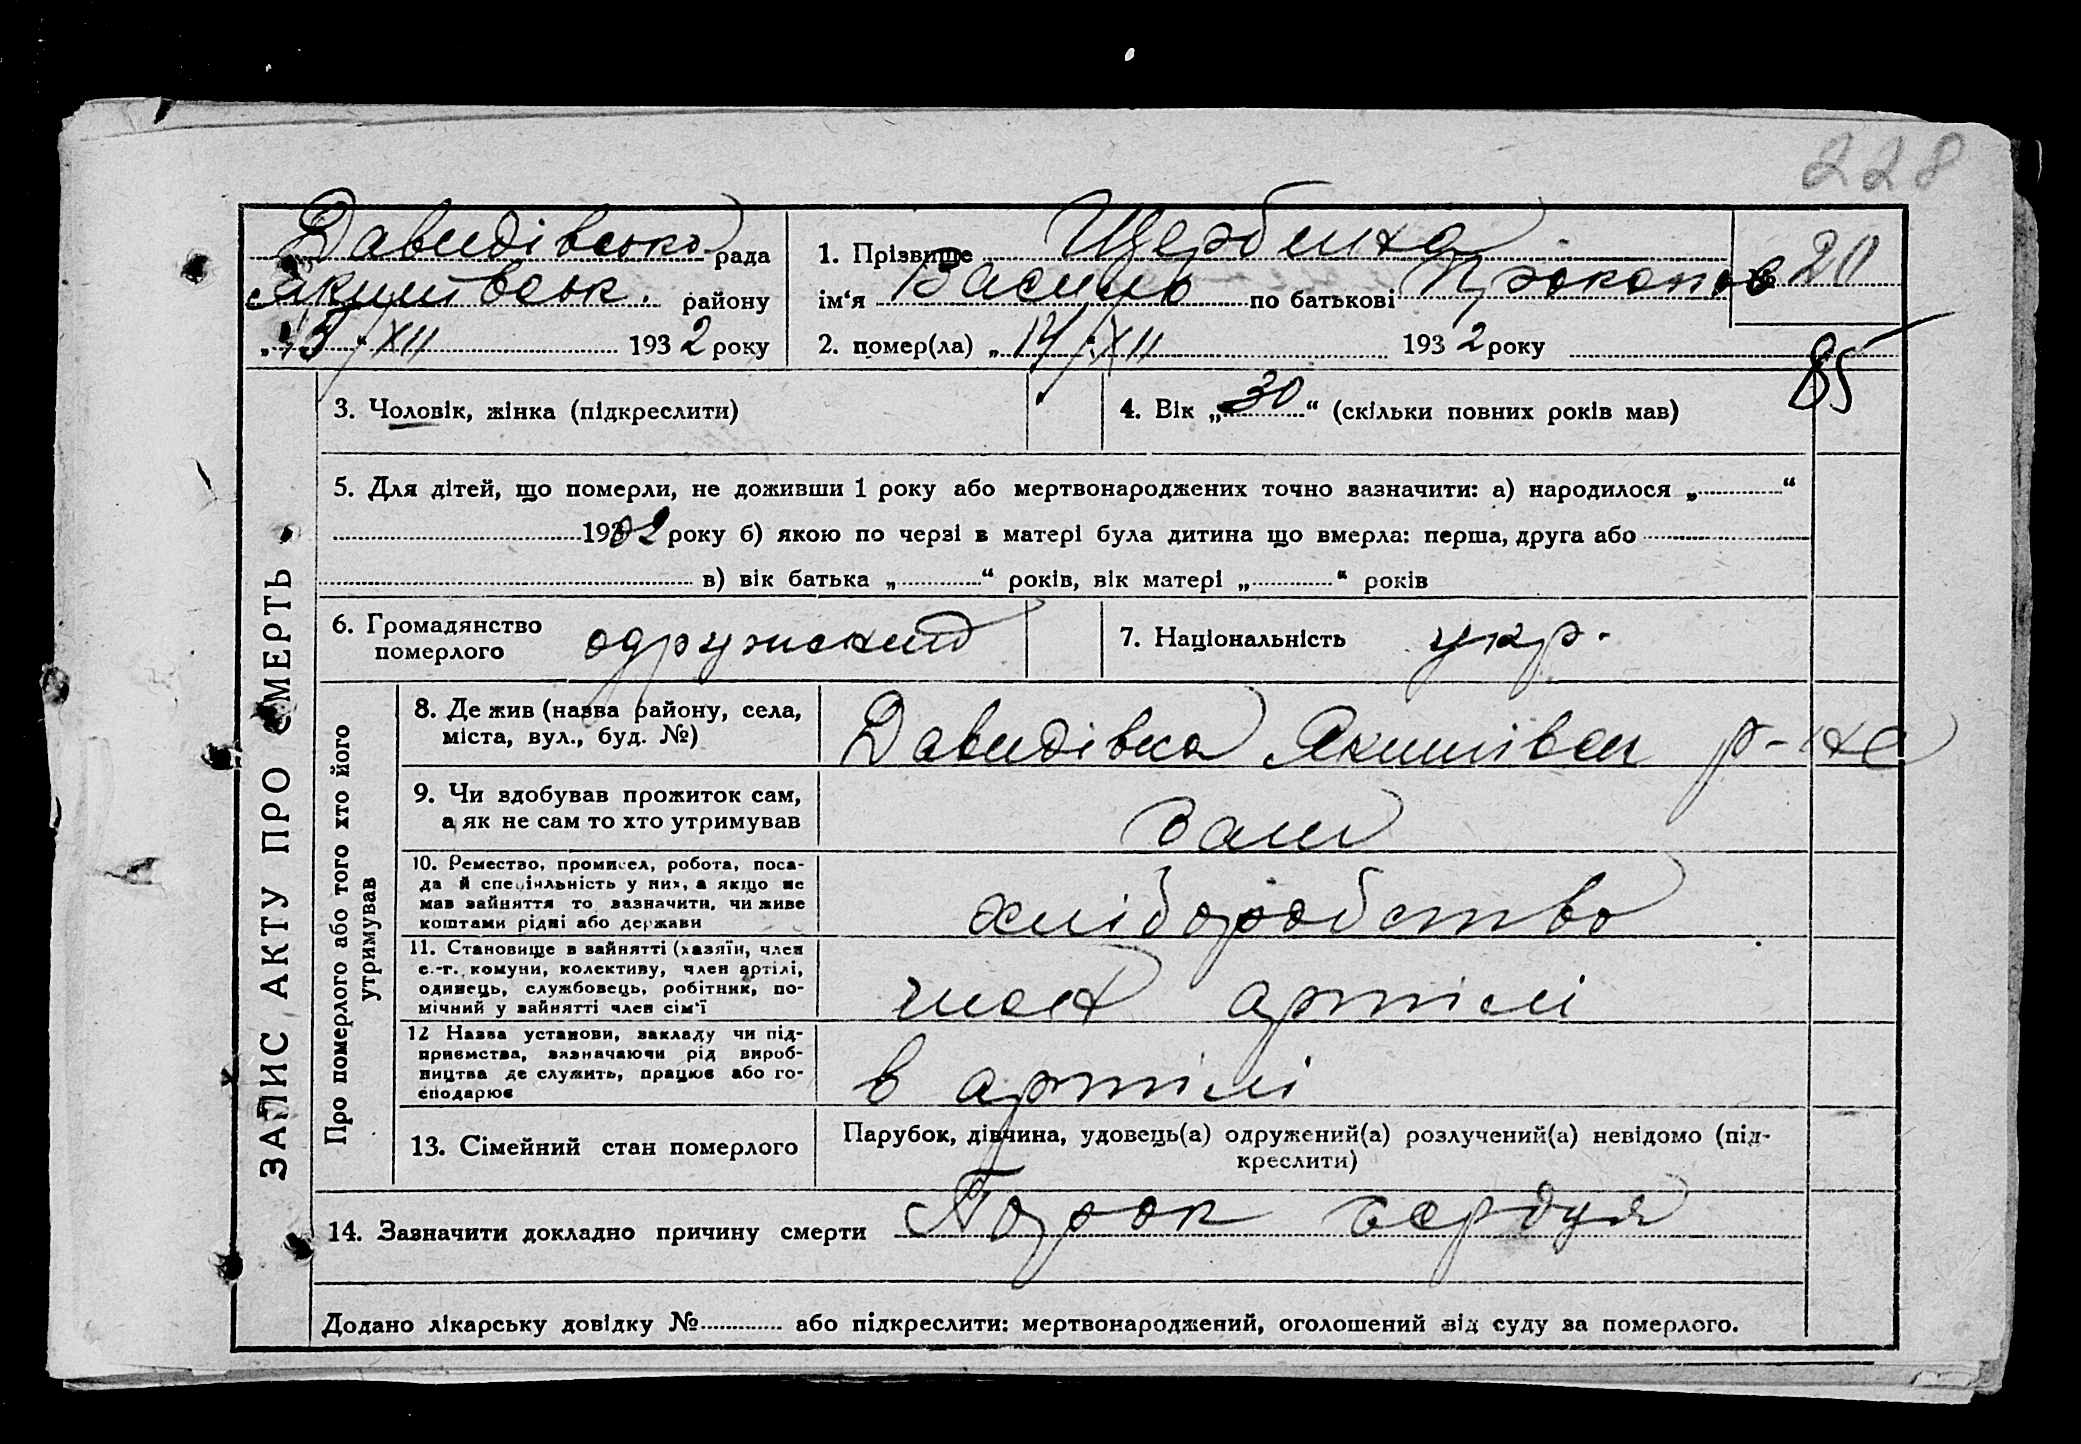 228
Давидівсько рада
Якимівськ. району
„15“/XII 1932 року
1. Прізвище Щербина
ім‘я Василь по батькові Прокопов
2. помер(ла) „14/XII 1932 року
20
85
3. Чоловік, жінка (підкреслити)
4. Вік „30“ (скільки повних років мав)
5. Для дітей, що померли, не доживши 1 року або мертвонароджених точно зазначити: а) народилося „ “
1902 року б) якою по черзі в матері була дитина що вмерла: перша, друга або
в) вік батька „ “ років, вік матері „ “ років
6. Громадянство
померлого
одружений
7. Національність укр.
ЗАПИС АКТУ ПРО СМЕРТЬ
Про померлого або того хто його
утримував
8. Де жив (назва району, села,
міста, вул., буд. №)
Давидівка Якимівськ р-на
9. Чи здобував прожиток сам,
а як не сам то хто утримував
сам
10. Ремество, промисел, робота, поса-
да й спеціяльність у них, а якщо не
мав зайняття то зазначити, чи живе
коштами рідні або держави
хліборобство
11. Становище в зайнятті (хазяїн, член
с.-г. комуни, колективу, член артілі,
одинець, службовець, робітник, по-
мічний у зайнятті член сім‘ї
член артілі
12 Назва установи, закладу чи під-
приємства, зазначаючи рід вироб-
ництва де служить, працює або го-
сподарює
в артілі
13. Сімейний стан померлого
Парубок, дівчина, удовець(а) одружений(а) розлучений(а) невідомо (під-
креслити)
14. Зазначити докладно причину смерти Порок сердця
Додано лікарську довідку № або підкреслити: мертвонароджений, оголошений від суду за померлого.